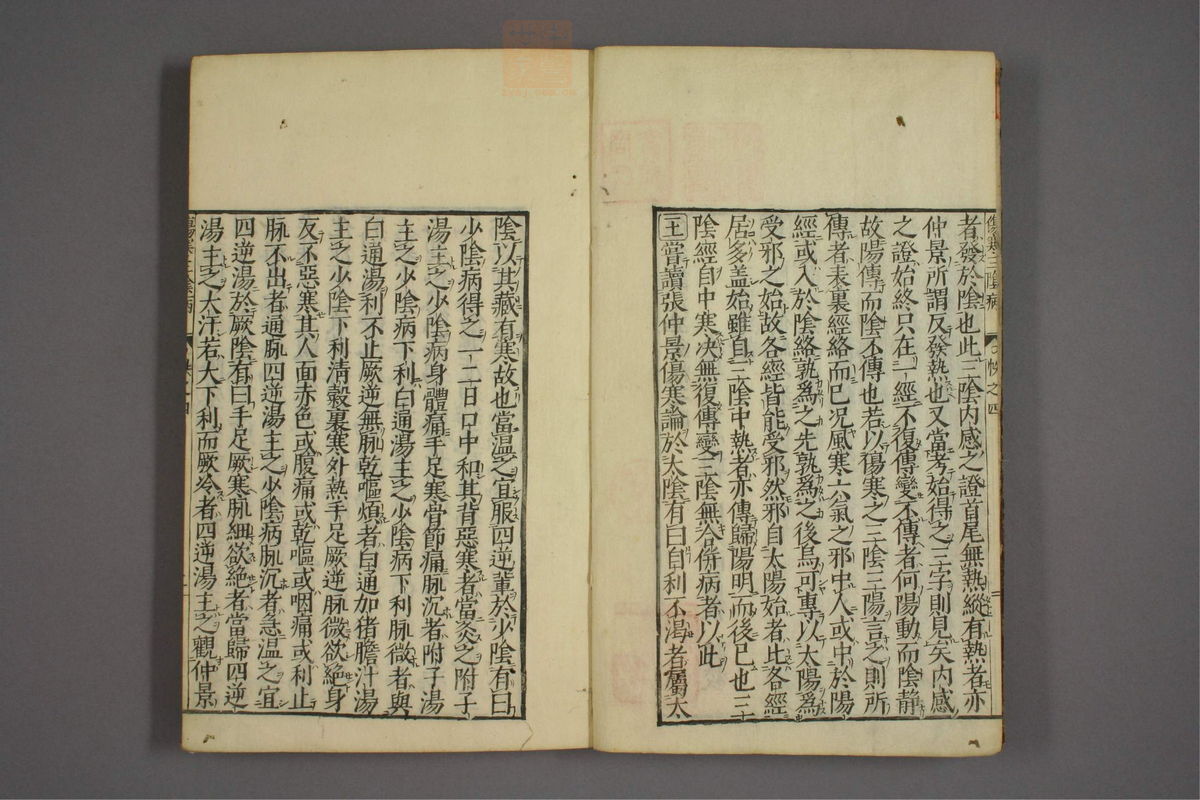 者發於陰也此三陰内感之證首尾無熱縱有熱者亦
仲景所謂反發熱也又當考始得之三字則見矣内感
之證始終只在一經不復傳變不傳者何陽動而陰靜
故陽傳而陰不傳也若以傷寒之三陰三陽言之則所
傳者表裏經絡而已况風寒六氣之邪中人或中於陽
經或入於陰絡孰爲之先孰爲之後烏可專以太陽爲
受邪之始故各經皆能受邪然邪自太陽始者此各經
居多盖始雖自三陰中熱者亦傳歸陽明而後已也三
陰經自中寒决無復傳變三陰無合併病者以此
二十一嘗讀張仲景傷寒論於太陰有曰自利不渴者屬太
傷寒三陰病
帙之四
陰以其藏有寒故也當温之宜服四逆輩於少陰有曰
少陰病得之一二日口中和其背惡寒者當灸之附子
湯主之少陰病身體痛手足寒骨節痛脉沉者附子湯
主之少陰病下利白通湯主之少陰病下利脉微者與
白通湯利不止厥逆無脉乾嘔煩者白通加猪膽汁湯
主之少陰下利清穀裏寒外熱手足厥逆脉微欲絶身
反不惡寒其人面赤色或腹痛或乾嘔或咽痛或利止
脉不出者通脉四逆湯主之少陰病脉沉者急温之宜
四逆湯於厥陰有曰手足厥寒脉細欲絶者當歸四逆
湯主之大汗若大下利而厥冷者四逆湯主之觀仲景